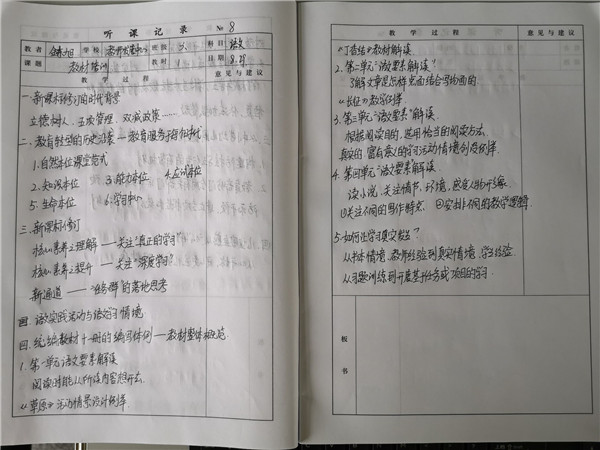 听课记录 № 8
教者 学校 班级 科目 语文
课题 教材培训 教时 1 日期 8.29
教学过程 意见与建议
一.新课标修订的时代背景
立德树人、五项管理、双减政策……
二、教育转型的历史沿袭——教育服务于时代
1.自然本位课堂范式
2.知识本位 3.能力本位 4.应试本位
5.生命本位 6.学习中心
三.新课标修订
核心素养之理解——关注"真正的学习"
核心素养之提升——关注"深度学习"
新通道——"任务群"的落地思考
四 语文实践活动与语文学习情境
四.统编教材十一册的编写体例——教材整体规范
1.第一单元语文要素解读
阅读时能从所读内容想开去
《草原》活动情景设计例举
教学过程 意见与建议
《丁香结》教材解读
2.第二单元"语文要素"解读
了解文章是怎样点面结合写场面的
《长征》教学例举
3.第三单元"语文要素"解读
根据阅读目的,选用恰当的阅读方法
真实的、富有意义的学习活动情境创设例举
4.第四单元"语文要素"解读
读小说,关注情节、环境,感受人物形象
①关注不同的写作特点 ②安排不同的教学
5.如何让学习真实发生?
从书本情境、教师经验到真实情境、学生经验
从习题训练到开展基于任务或项目的学习
板书